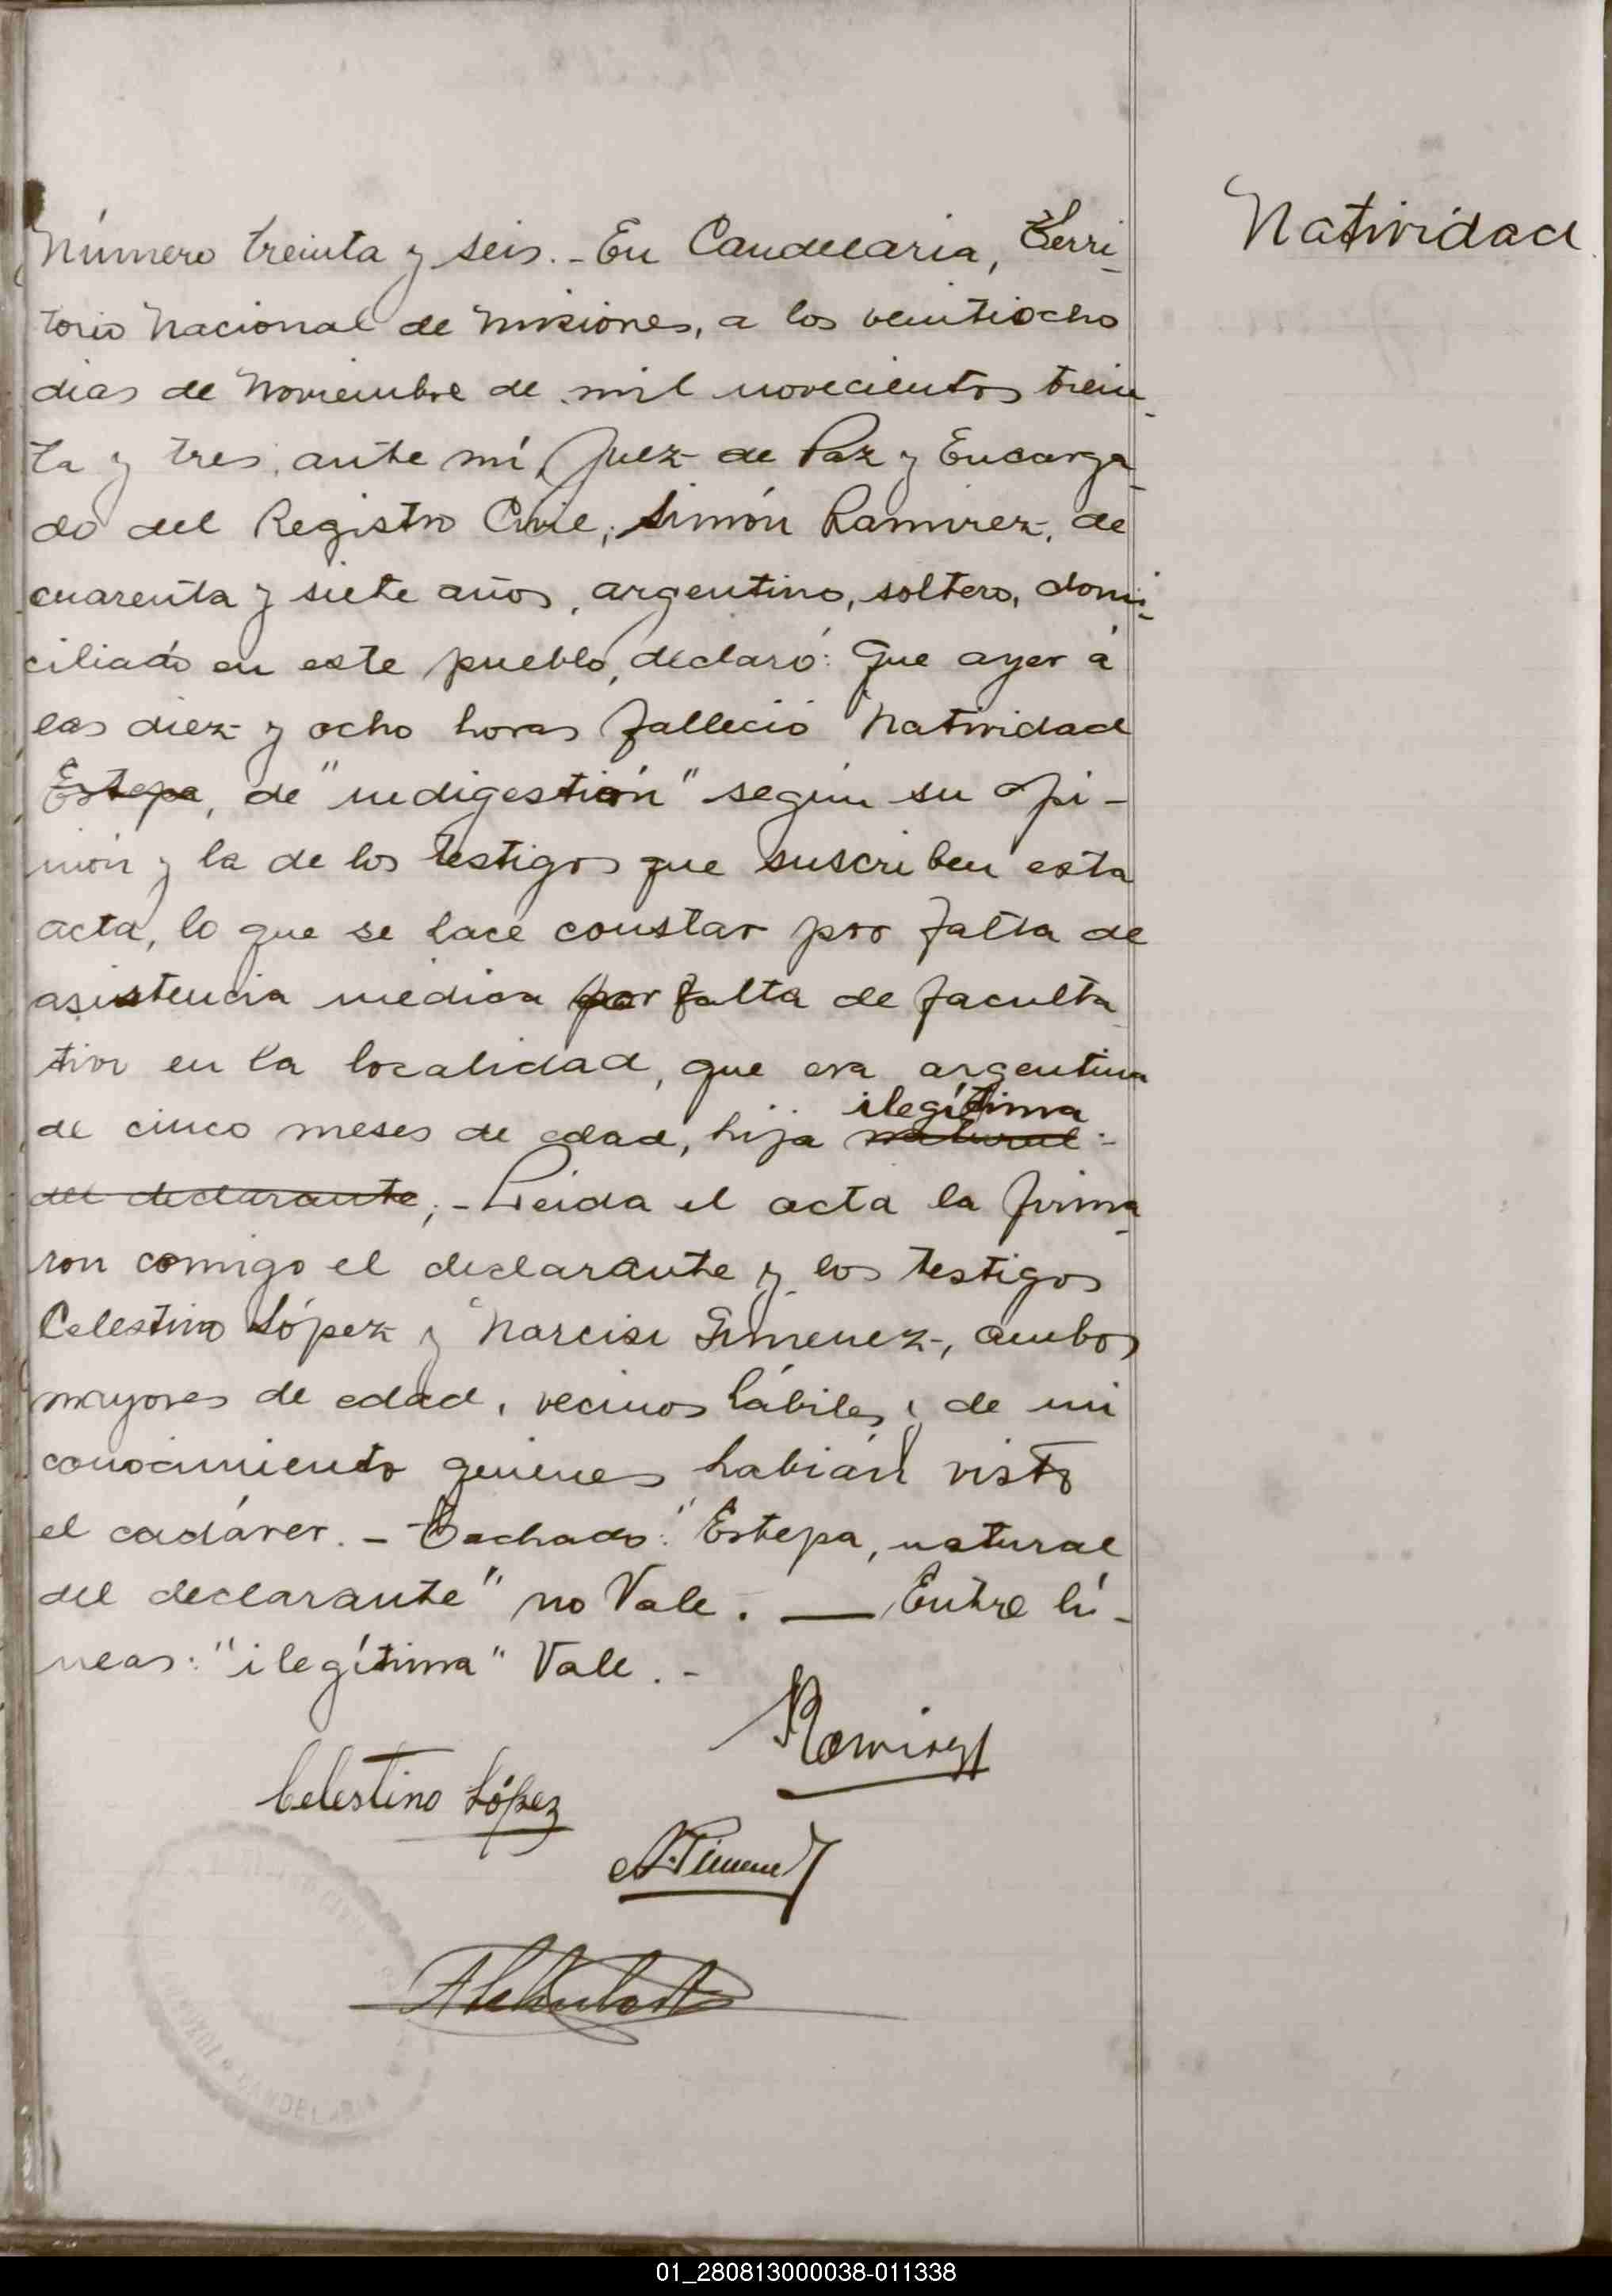 Natividad
Número treinta y seis. - En Candelaria, Terri-
torio Nacional de Misiones, a los veintiocho
dias de Noviembre de mil novecientos trein-
ta y tres, ante mí, Juez de Paz y Encarga-
do del Registro Civil, Simón Ramirez, de
cuarenta y siete años, argentino, soltero, domi-
ciliado en este pueblo, declaró: Que ayer á
las diez y ocho horas falleció Natividad
Estepa, de "indigestión" según su opi-
nión y la de los testigos que suscriben esta
acta, lo que se hace constar por falta de
asistencia médica por falta de faculta
tivo en la localidad, que era argentina
ilegítima
de cinco meses de edad, hija natural -
del declarante, - Leida el acta la firma-
ron comigo el declarante y los testigos
Celestino López y Narciso Gimenez, ambos
mayores de edad, vecinos hábiles y de mi
conocimiento quienes habían visto
el cadáver. - Tachado: "Estepa, natural
del declarante" no Vale. — Entre lí-
neas: "ilegítima" Vale. -
Ramirez
Celestino López
N. Gimenez
CANDELARIA
01_280813000038-011338